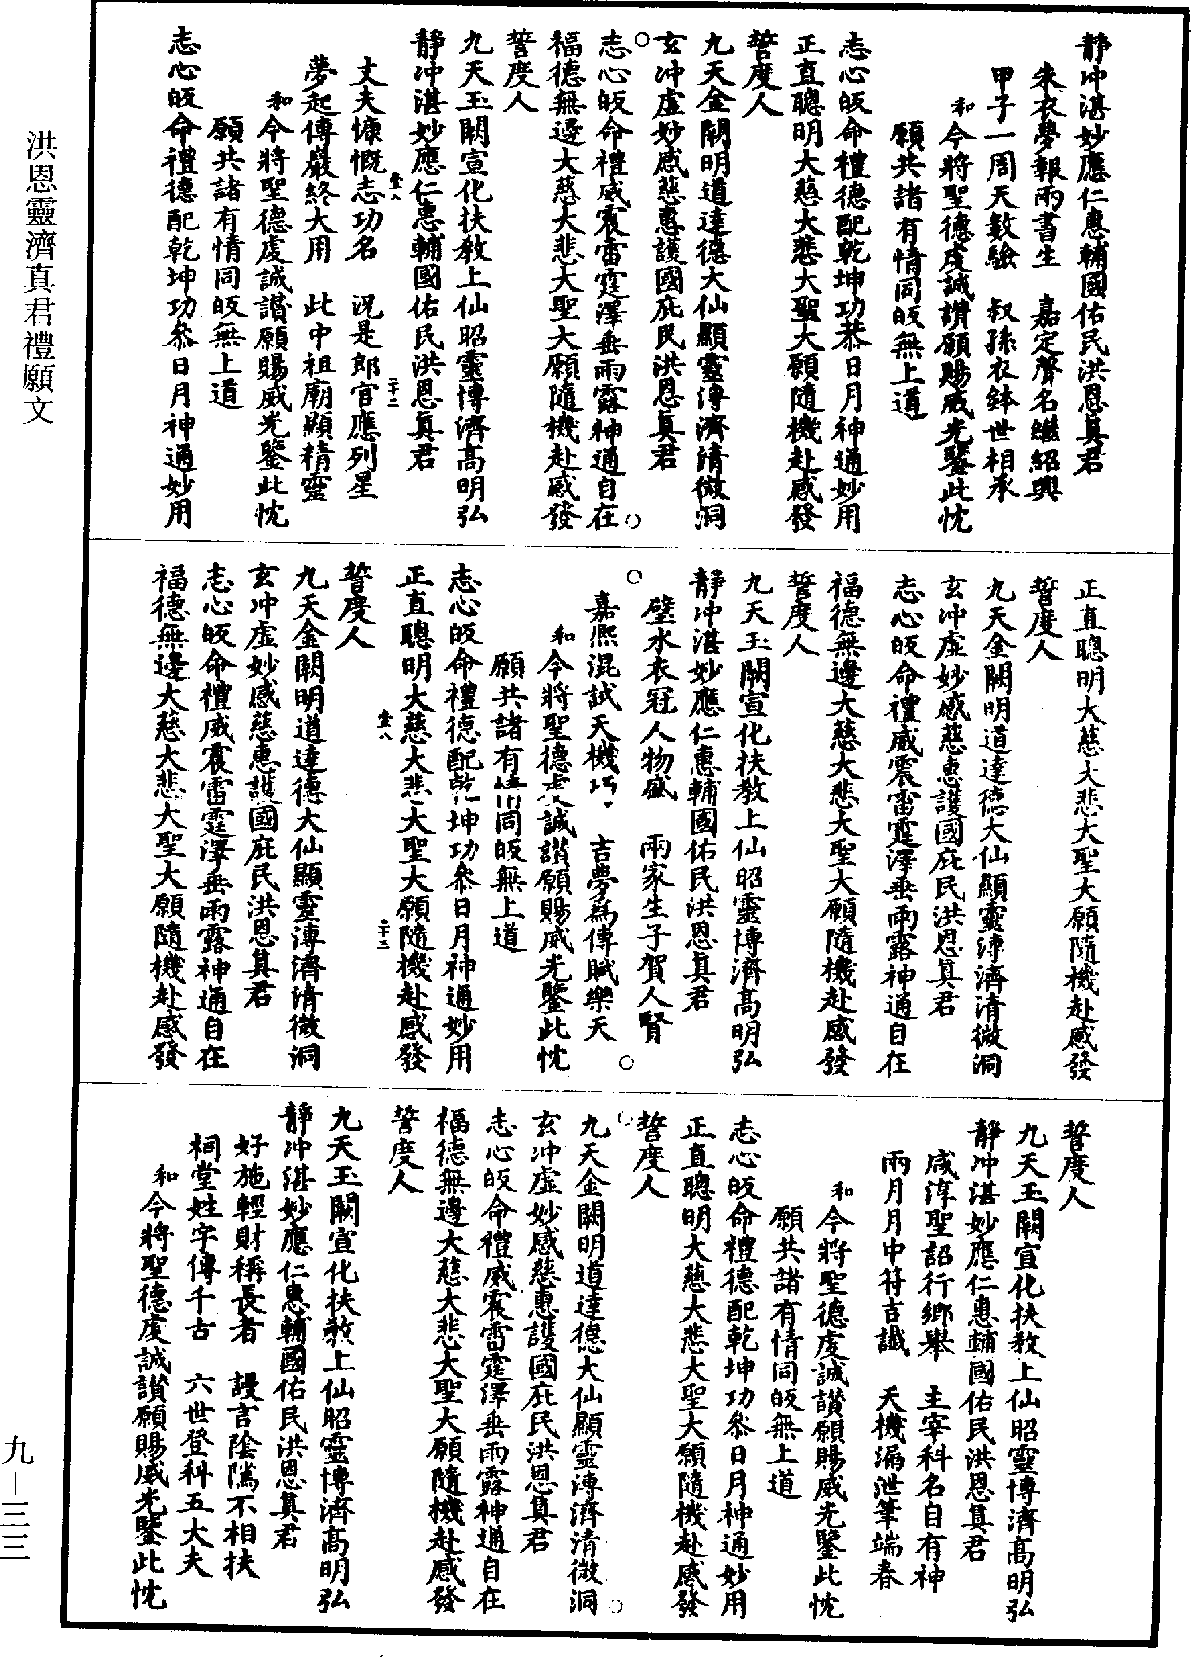 靜沖湛妙應仁惠輔國佑民洪恩真君
朱衣夢報兩書生　嘉定聲名繼紹興
甲子一周天數驗　叔孫衣鉢世相承
和今將聖德虔誠讚願賜威光鑒此忱
願共諸有情同皈無上道
志心皈命禮德配乾坤功恭日月神通妙用
正直聰明大慈大悲大聖大願隨機赴感發
誓度人
九天金闕明道達德大仙顯靈溥濟清微洞
玄沖虛妙感慈惠護國庇民洪恩真君
志心皈命禮威震雷霆澤垂雨露神通自在
福德無邊大慈大悲大聖大願隨機赴感發
誓度人
九天玉闕宣化扶教上仙昭靈博濟高明弘
靜沖湛妙應仁惠輔國佑民洪恩真君
丈夫慷慨志功名　況是郎官應列星
夢起傅巖終大用　此中祖廟顯精靈
和今將聖德虔誠讚願賜威光鑒此忱
願共諸有情同皈無上道
志心皈命禮德配乾坤功叅日月神通妙用
正直聰明大慈大悲大聖大願隨機赴感發
誓度人
九天金闕明道達德大仙顯靈溥濟清微洞
玄沖虛妙感慈惠護國庇民洪恩真君
志心皈命禮威震雷霆澤垂雨露神通自在
福德無邊大慈大悲大聖大願隨機赴感發
誓度人
九天玉闕宣化扶教上仙昭靈博濟高明弘
靜沖湛妙應仁惠輔國佑民洪恩真君
璧水衣冠人物盛　兩家生子賀人賢
嘉熙混試天機巧　吉夢爲傳賦樂天
和今將聖德虔誠讚願賜威光鑒此忱
願共諸有情同皈無上道
志心皈命禮德配乾坤功叅日月神通妙用
正直聰明大慈大悲大聖大願隨機赴感發
誓度人
九天金闕明道達德大仙顯靈溥濟清微洞
玄沖虛妙感慈惠護國庇民洪恩真君
志心皈命禮威震雷霆澤垂雨露神通自在
福德無邊大慈大悲大聖大願隨機赴感發
誓度人
九天玉闕宣化扶教上仙昭靈博濟高明弘
靜沖湛妙應仁惠輔國佑民洪恩真君
咸淳聖詔行鄉舉　主宰科名自有神
兩月月中符吉讖　天機漏泄筆端春
和今將聖德虔誠讚願賜威光鑒此忱
願共諸有情同皈無上道
志心皈命禮德配乾坤功叅日月神通妙用
正直聰明大慈大悲大聖大願隨機赴感發
誓度人
九天金闕明道達德大仙顯靈溥濟清微洞
玄沖虛妙感慈惠護國庇民洪恩真君
志心皈命禮威震雷霆澤垂雨露神通自在
福德無邊大慈大悲大聖大願隨機赴感發
誓度人
九天玉闕宣化扶教上仙昭靈博濟高明弘
靜沖湛妙應仁惠輔國佑民洪恩真君
好施輕財稱長者　謾言陰騭不相扶
祠堂姓字傳千古　六世登科五大夫
和今將聖德虔誠讚願賜威光鑒此忱
洪恩靈濟真君禮願文
九—三三